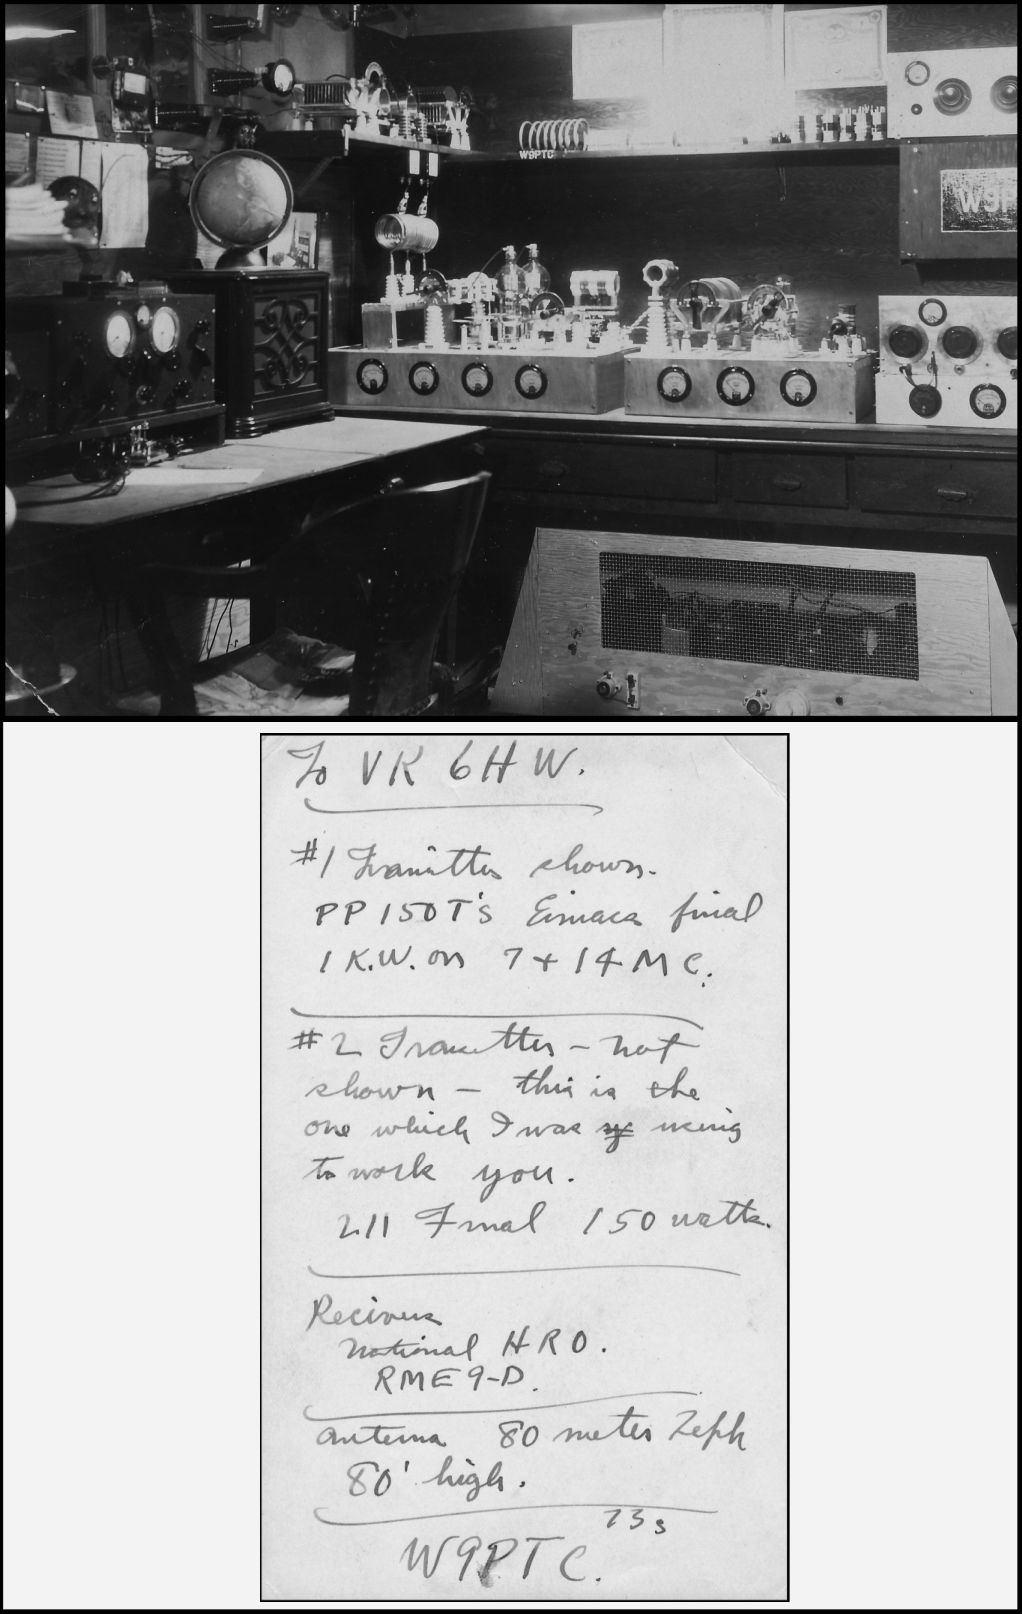 W9PTC
W9P
To VK 6HW.
#1 Tranitter shown.
PP 150T's Eimacs final
1 K.W. on 7 + 14 MC.
#2 Tranitter - not
shown - this is the
one which I was using
to work you.
211 Final 150 watts.
Recivers
National HRO.
RME 9-D.
antenna 80 meter Zeph
80' high.
73s
W9PTC.